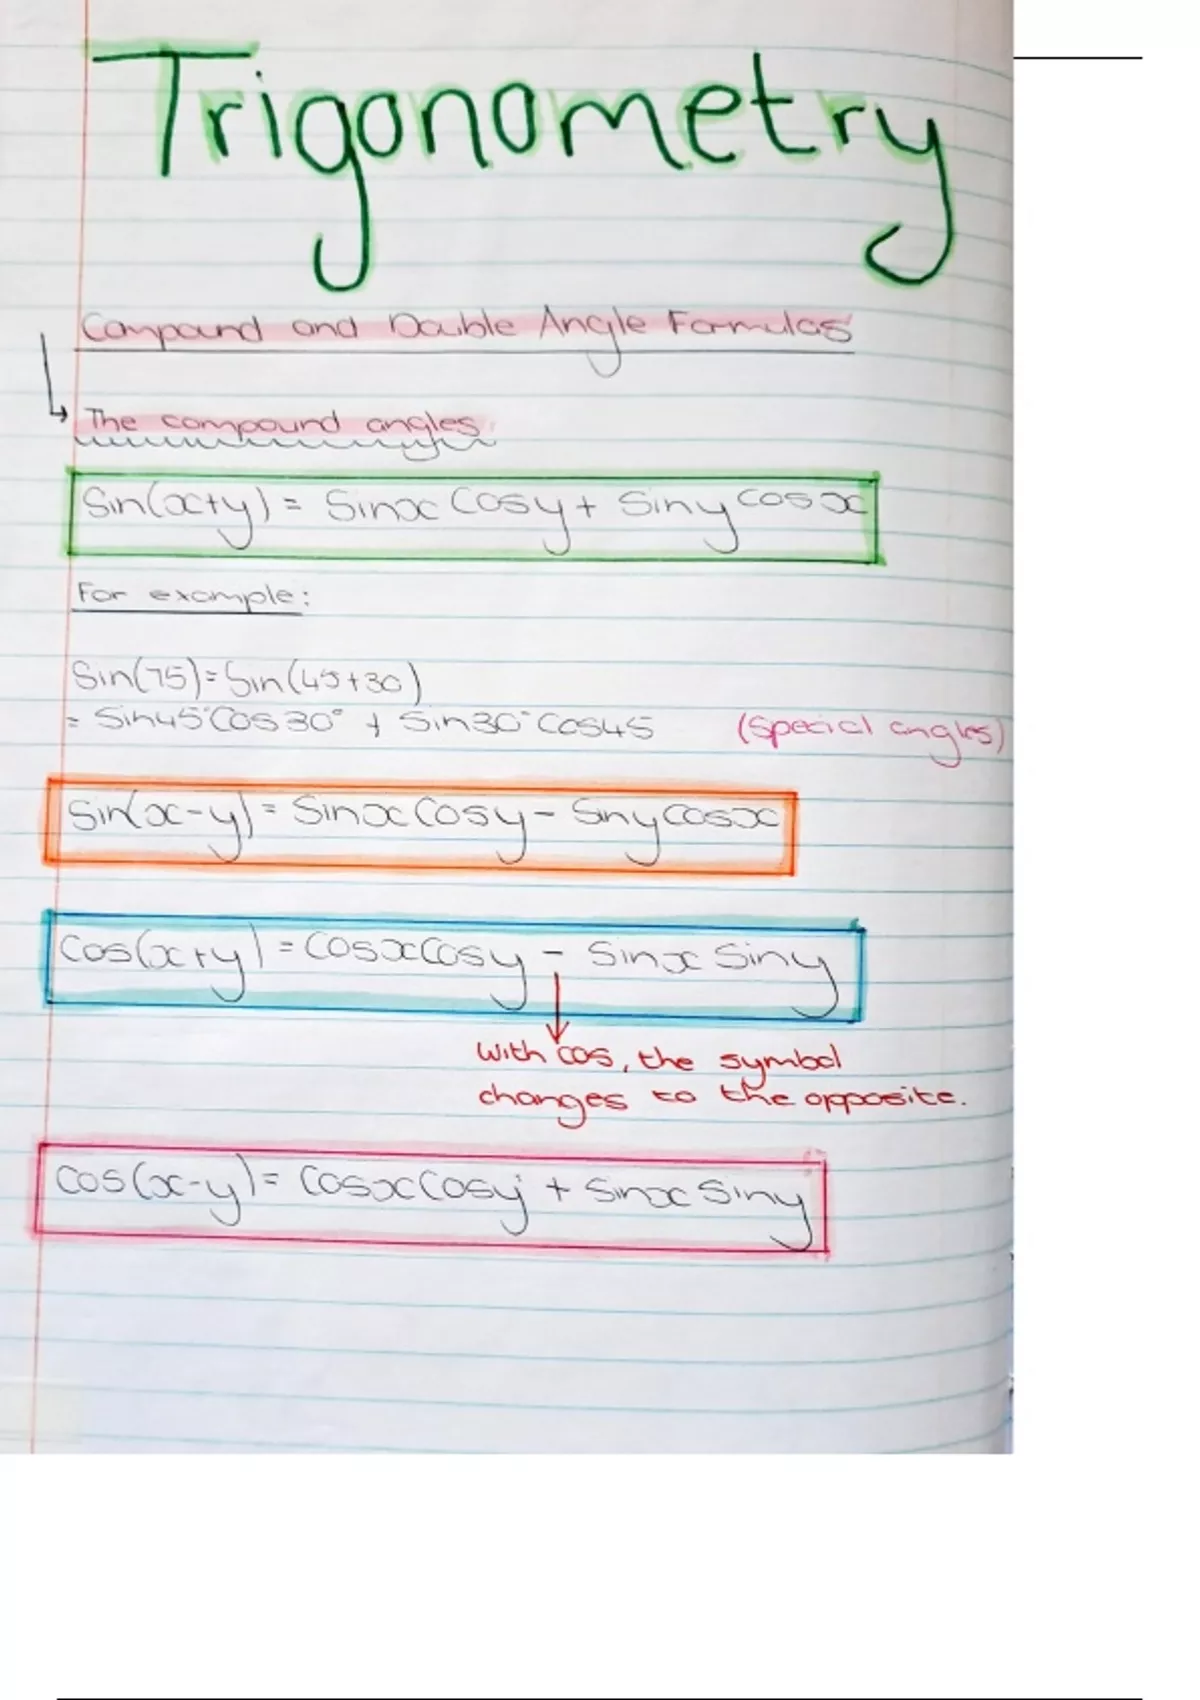 Trigonometry
Compound and Double Angle Formulas
The compound angles
Sin(x+y) = Sinx Cosy + Siny cosx
For example:
Sin(75)=Sin(45+30)
= Sin45°Cos30° + Sin30°Cos45 (Special angles)
Sin(x-y) = Sinx Cosy - Siny Cosx
Cos(x+y) = CosxCosy - Sinx Siny
With cos, the symbol
changes to the opposite.
Cos(x-y) = CosxCosy + Sinx Siny